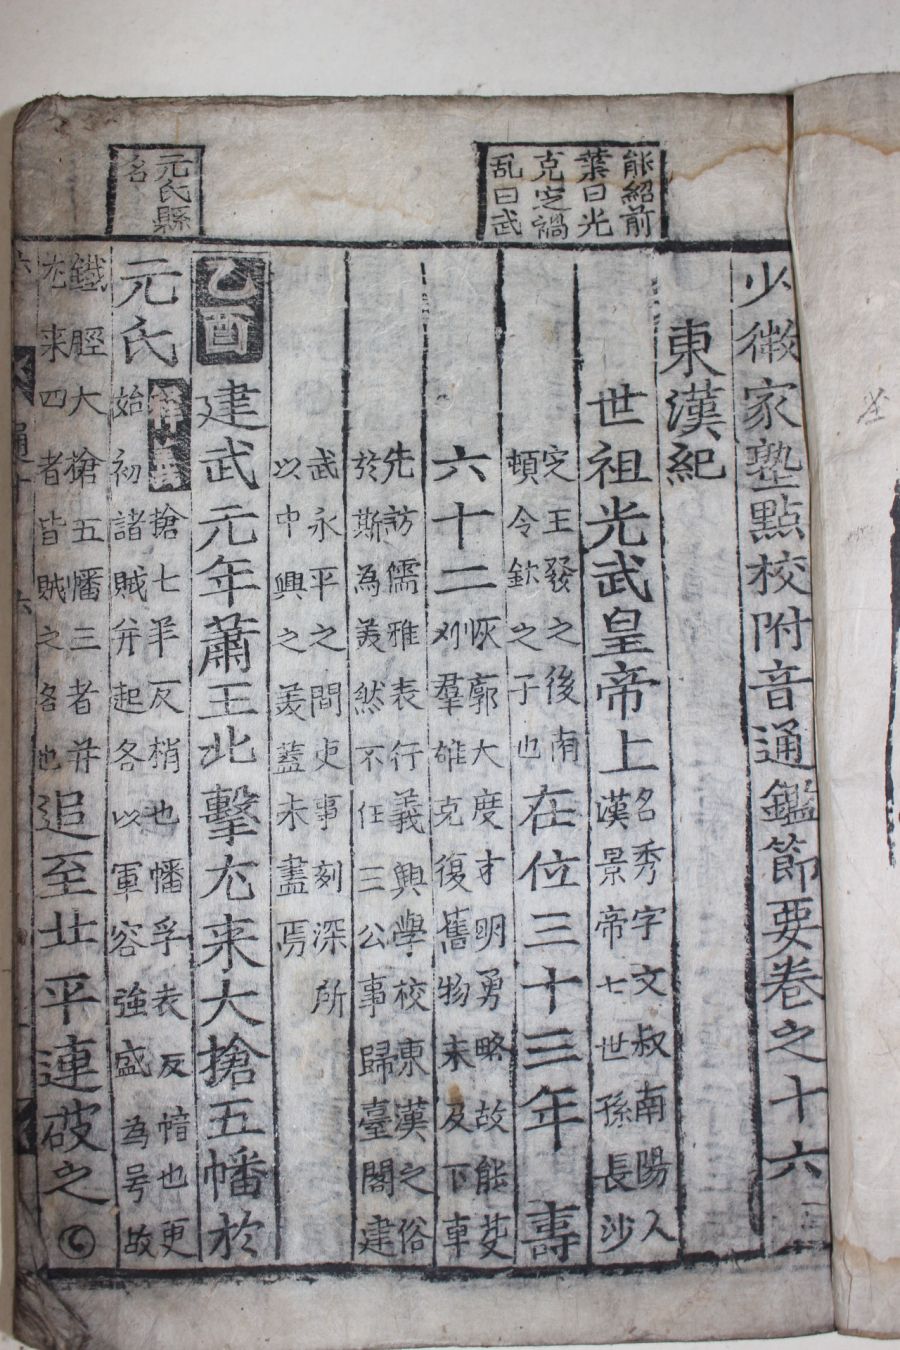 能紹前
葉曰光
克定禍
乱曰武
元氏縣
名
少微家塾點校附音通鑑節要卷之十六
東漢紀
世祖光武皇帝上
名秀字文叔南陽人
漢景帝七世孫長沙
定王發之後南
頓令欽之子也
在位三十三年壽
六十二
恢郭大度才明勇略故能芟
刈羣雄克復舊物未及下車
先訪儒雅表行義興學校東漢之俗
於斯為羙然不任三公事歸臺閣建
武永平之間吏事刻深所
以中興之羙蓋未盡焉
乙酉建武元年蕭王北擊尢来大搶五幡於
元氏
釋義
搶七羊反梢也幡孚表反幟也更
始初諸賊并起各以軍容強盛為号故
鐵脛大搶五幡三者并
尢来四者皆賊之名也
追至北平連破之